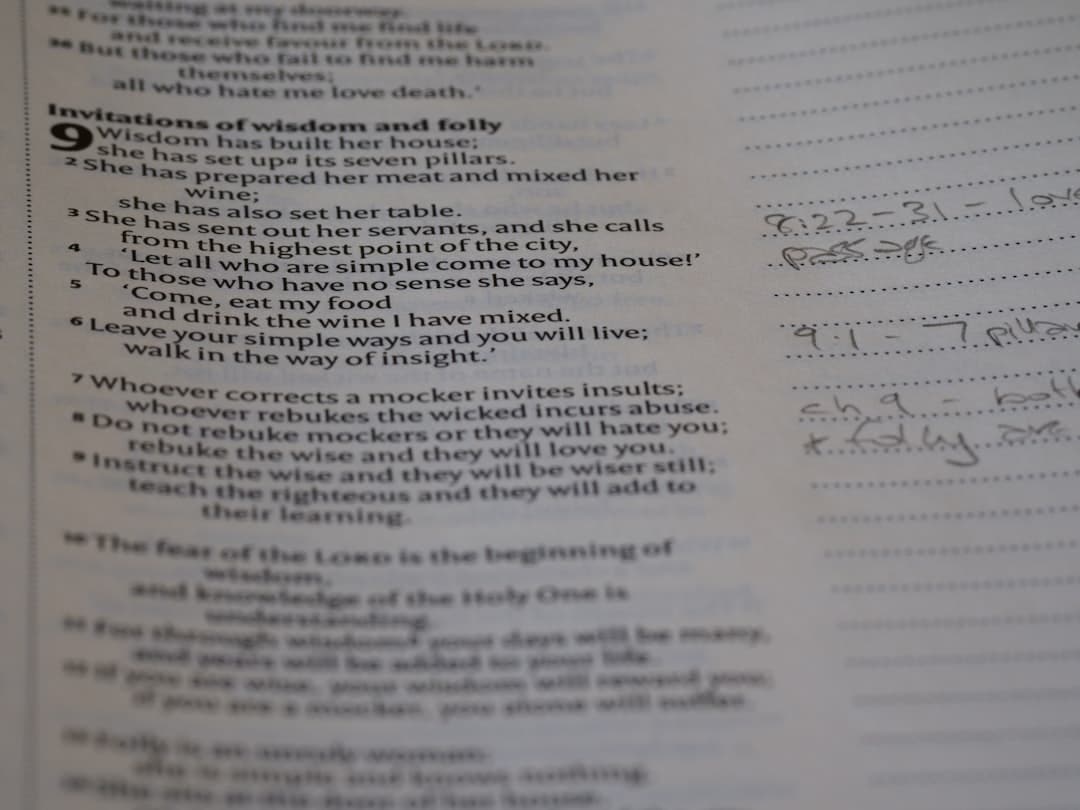 waiting at my doorway.
35 For those who find me find life
and receive favour from the LORD.
36 But those who fail to find me harm
themselves;
all who hate me love death.’
Invitations of wisdom and folly
9 Wisdom has built her house;
she has set upa its seven pillars.
2 She has prepared her meat and mixed her
wine;
she has also set her table.
3 She has sent out her servants, and she calls
from the highest point of the city,
4 ‘Let all who are simple come to my house!’
To those who have no sense she says,
5 ‘Come, eat my food
and drink the wine I have mixed.
6 Leave your simple ways and you will live;
walk in the way of insight.’
7 Whoever corrects a mocker invites insults;
whoever rebukes the wicked incurs abuse.
8 Do not rebuke mockers or they will hate you;
rebuke the wise and they will love you.
9 Instruct the wise and they will be wiser still;
teach the righteous and they will add to
their learning.
10 The fear of the LORD is the beginning of
wisdom,
and knowledge of the Holy One is
understanding.
11 For through wisdom your days will be many,
and years will be added to your life.
12 If you are wise, your wisdom will reward you;
if you are a mocker, you alone will suffer.
13 Folly is an unruly woman;
she is simple and knows nothing.
8:22-31 - love
passage
9:1 - 7 pillars
ch 9 - both
* folly are